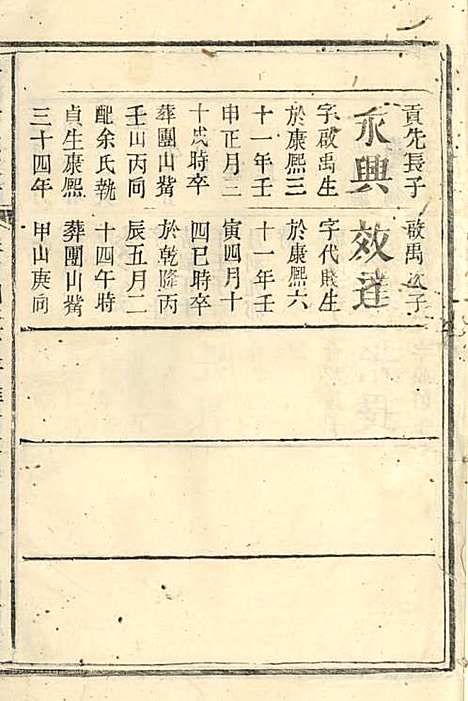 貢先長子
永興
字啟禹生
於康熙三
十一年壬
申正月二
十戌時卒
葬團山觜
壬山丙向
配余氏𫞼
貞生康熙
三十四年
啟禹次子
效達
字代賤生
於康熙六
十一年壬
寅四月十
四巳時卒
於乾隆丙
辰五月二
十四午時
葬團山觜
甲山庚向